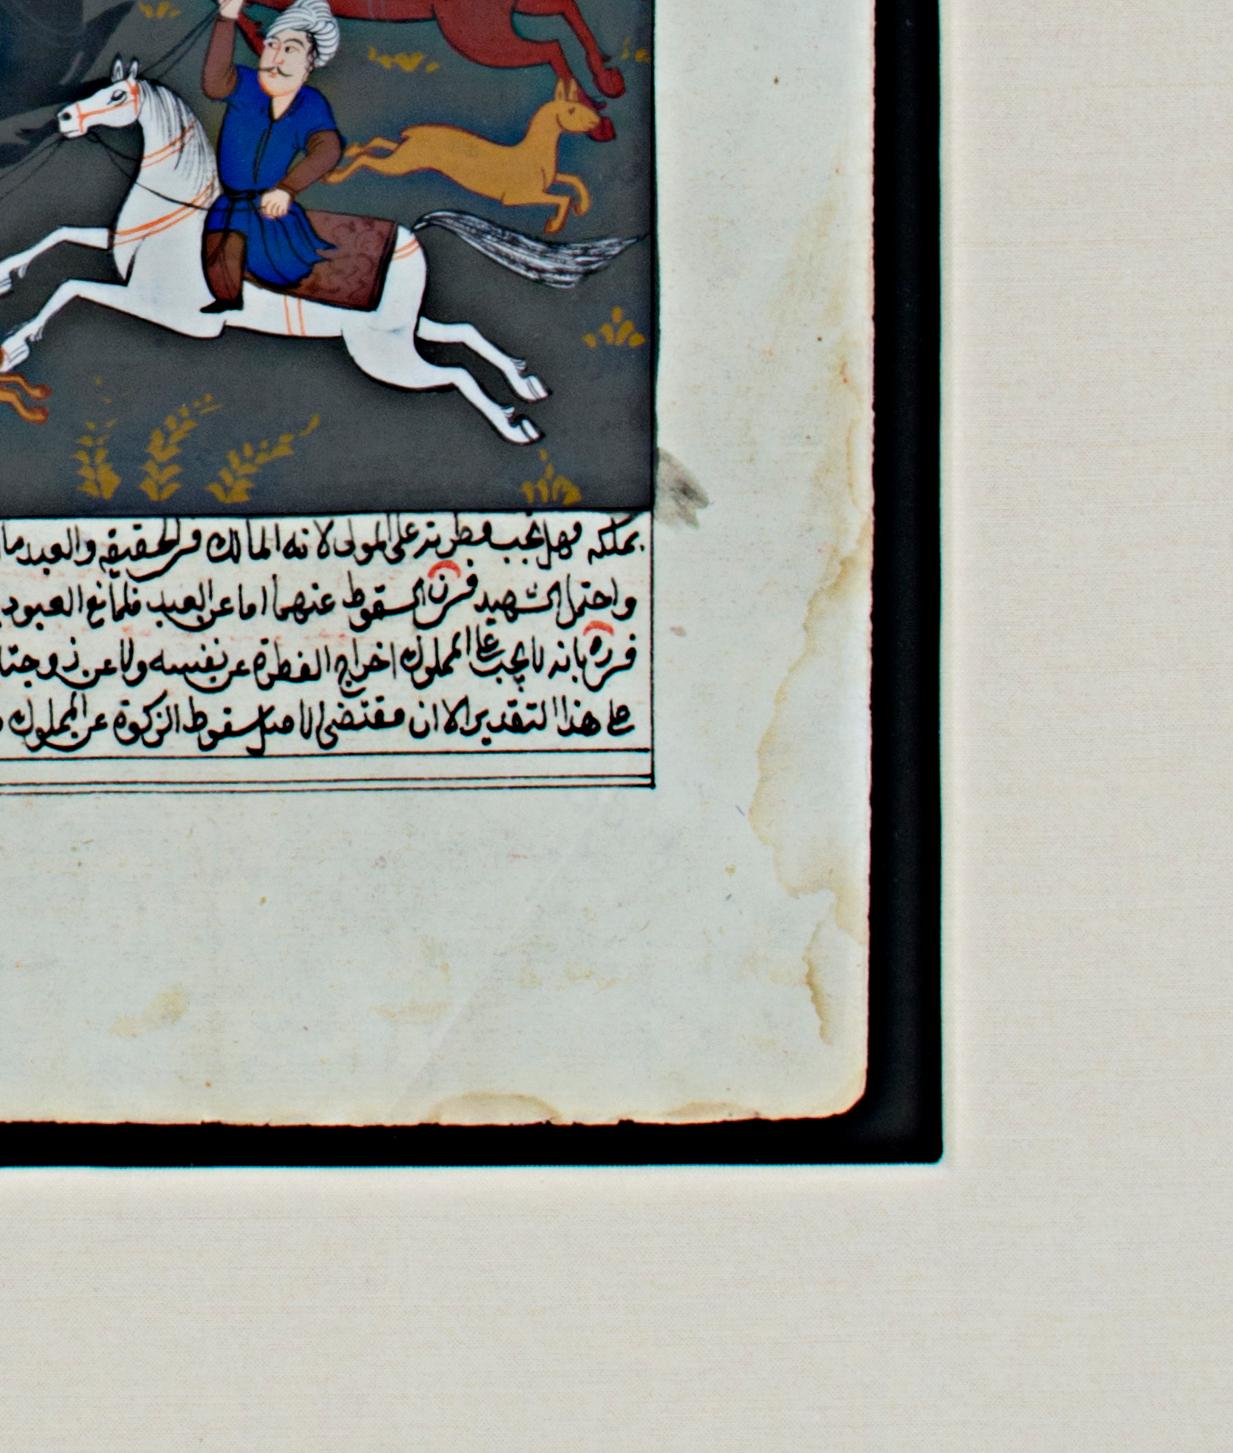 بملكه وهل يجب فطرته على المولى لانه المالك في الحقيقة والعبد ما
واحتمل الشهيد في ن السقوط عنهما اما عن العبد فلمانع العبود
في ره بانه لا يجب على المملوك اخراج الفطرة عن نفسه ولا عن زوجته
على هذا التقدير الا ان مقتضى الاصل سقوط الزكوة عن المملوك